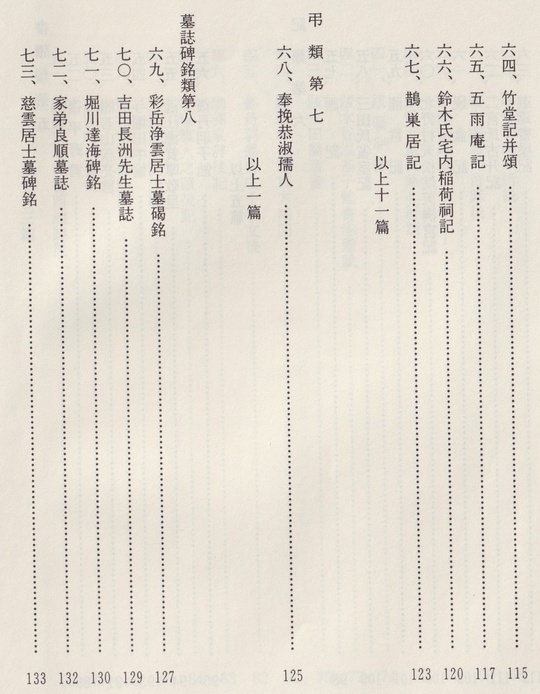 六四、竹堂記并頌……115
六五、五雨庵記……117
六六、鈴木氏宅内稲荷祠記……120
六七、鵲巣居記……123
以上十一篇
弔類第七
六八、奉挽恭淑孺人……125
以上一篇
墓誌碑銘類第八
六九、彩岳浄雲居士墓碣銘……127
七〇、吉田長洲先生墓誌……129
七一、堀川達海碑銘……130
七二、家弟良順墓誌……132
七三、慈雲居士墓碑銘……133